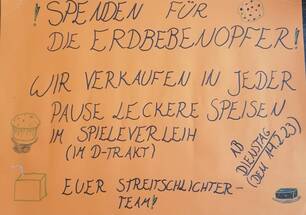 ! SPENDEN FÜR
DIE ERDBEBENOPFER!
WIR VERKAUFEN IN JEDER
PAUSE LECKERE SPEISEN
IM SPIELEVERLEIH
(IM D-TRAKT)
AB
DIENSTAG
(DEM 14.2.23)
EUER STREITSCHLICHTER-
TEAM!!